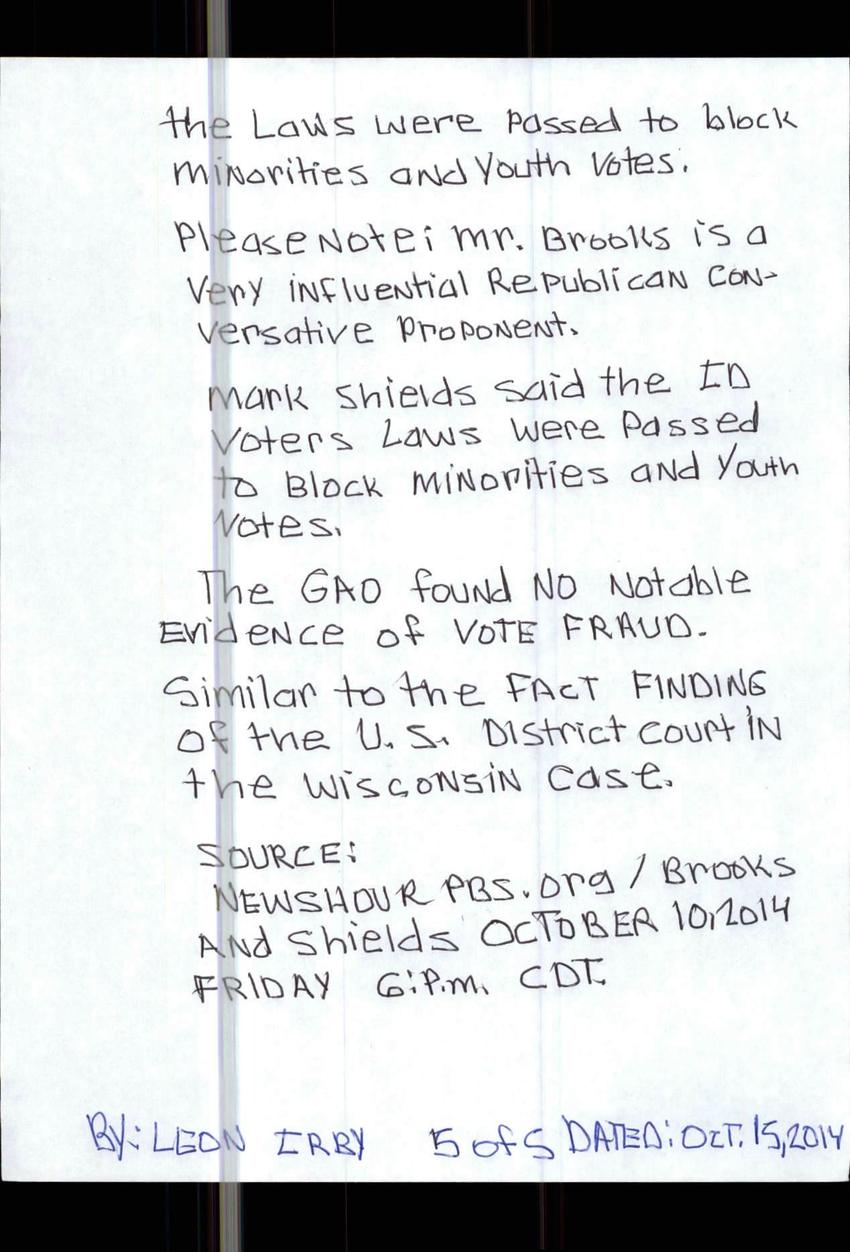 the Laws were passed to block
minorities and Youth Votes.
Please Note: Mr. Brooks is a
Very influential Republican Con-
versative Proponent.
Mark Shields said the ID
Voters Laws were Passed
to Block Minorities and Youth
Votes.
The GAO found No Notable
Evidence of VOTE FRAUD.
Similar to the FACT FINDING
of the U.S. District Court IN
the Wisconsin Case.
SOURCE:
NEWSHOUR PBS.org / Brooks
And Shields OCTOBER 10, 2014
FRIDAY 6:P.m. CDT.
BY: LEON IRBY 5 of 5 DATED: OCT. 15, 2014